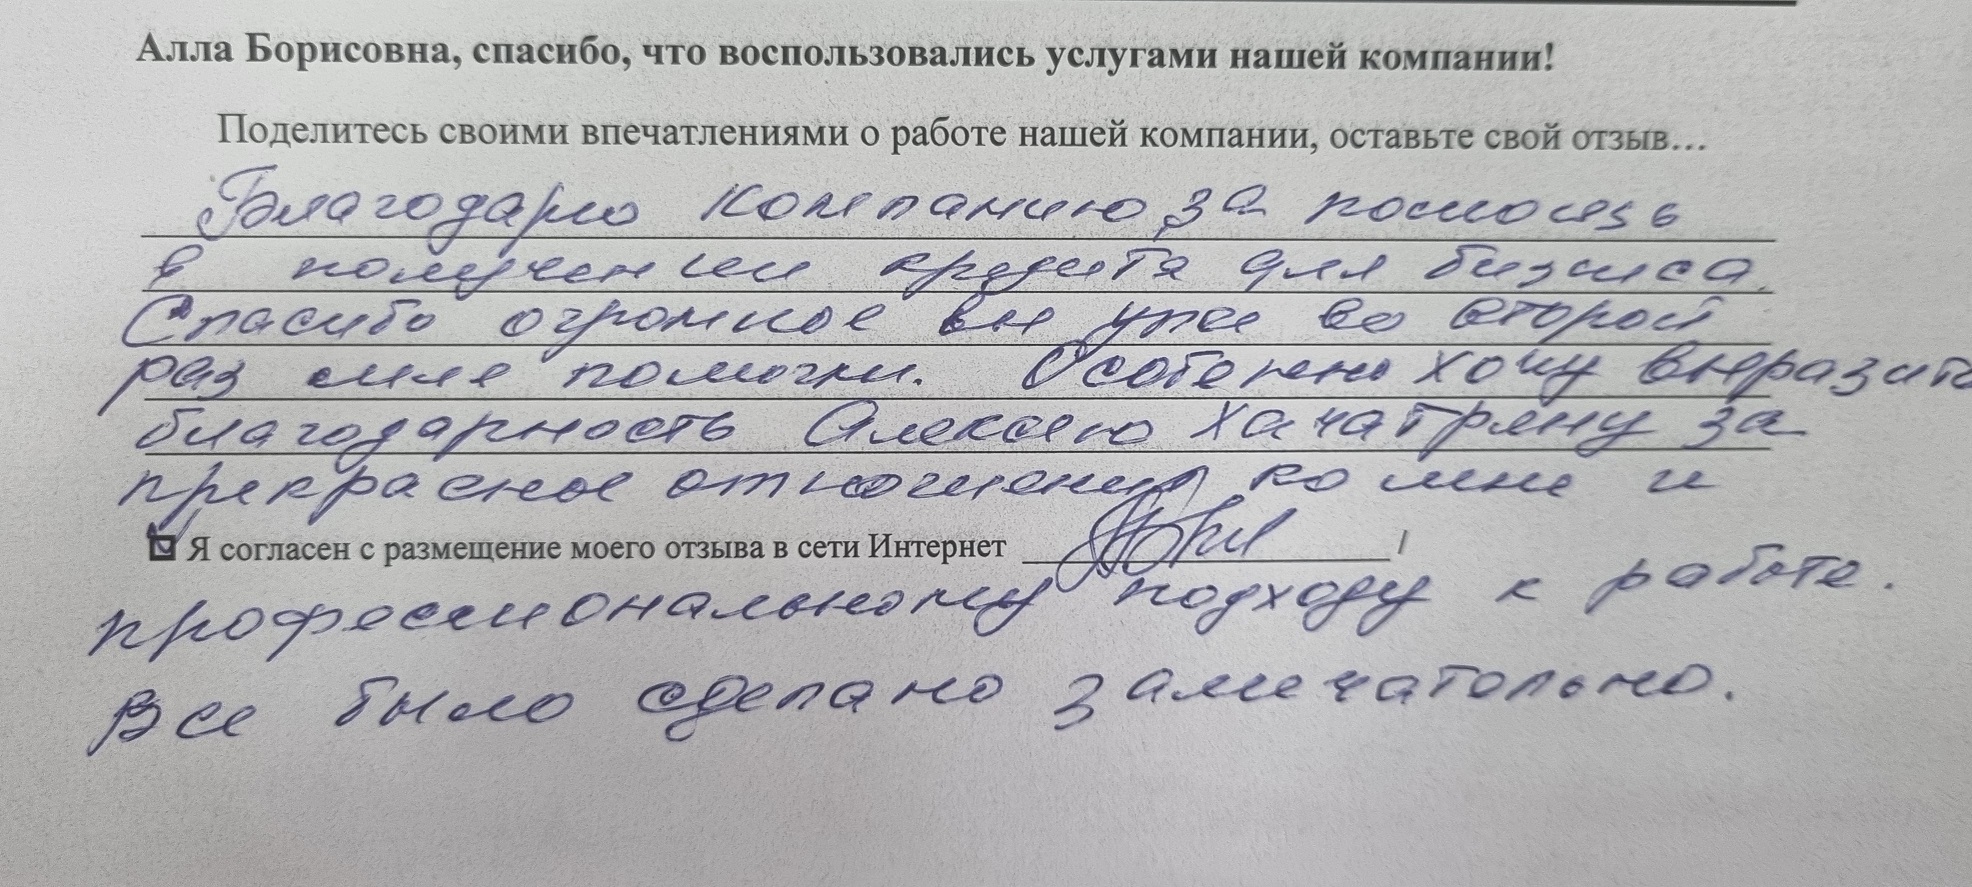 Алла Борисовна, спасибо, что воспользовались услугами нашей компании!
Поделитесь своими впечатлениями о работе нашей компании, оставьте свой отзыв...
Благодарю компанию за помощь
в получении кредита для бизнеса.
Спасибо огромное вы уже во второй
раз мне помогли. Особенно хочу выразить
благодарность Алексею Хачатряну за
прекрасное отношение ко мне и
Я согласен с размещение моего отзыва в сети Интернет /
профессиональному подходу к работе.
Все было сделано замечательно.